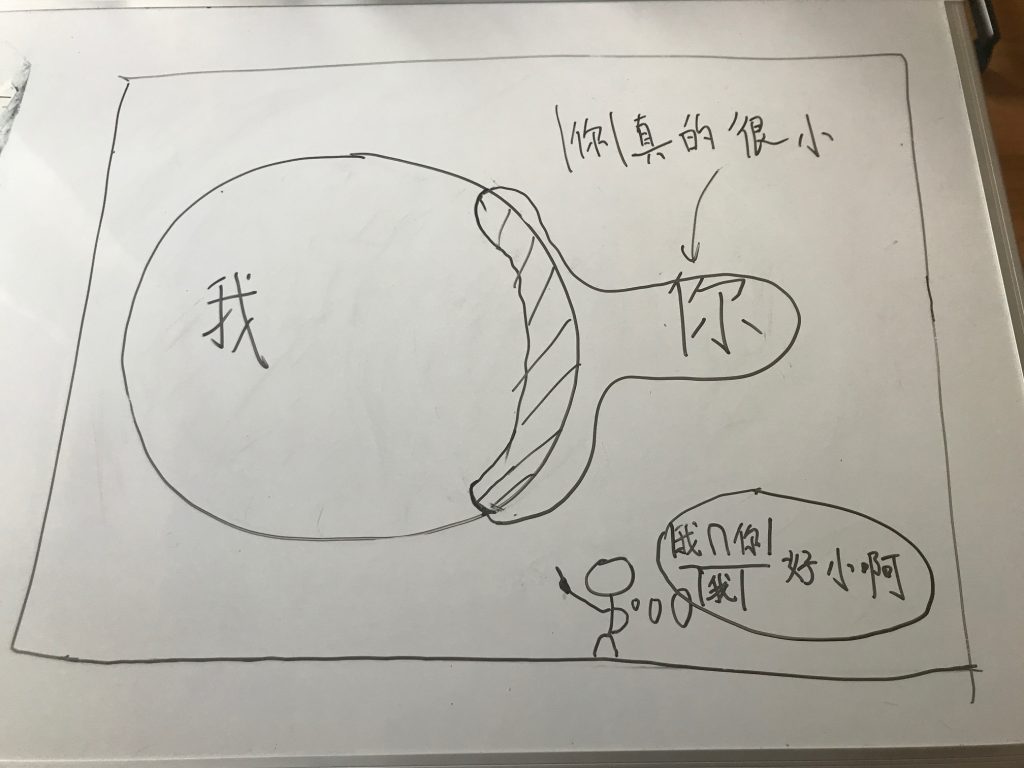 |你|真的很小
我
你
|我∩你|
|我|
好小啊